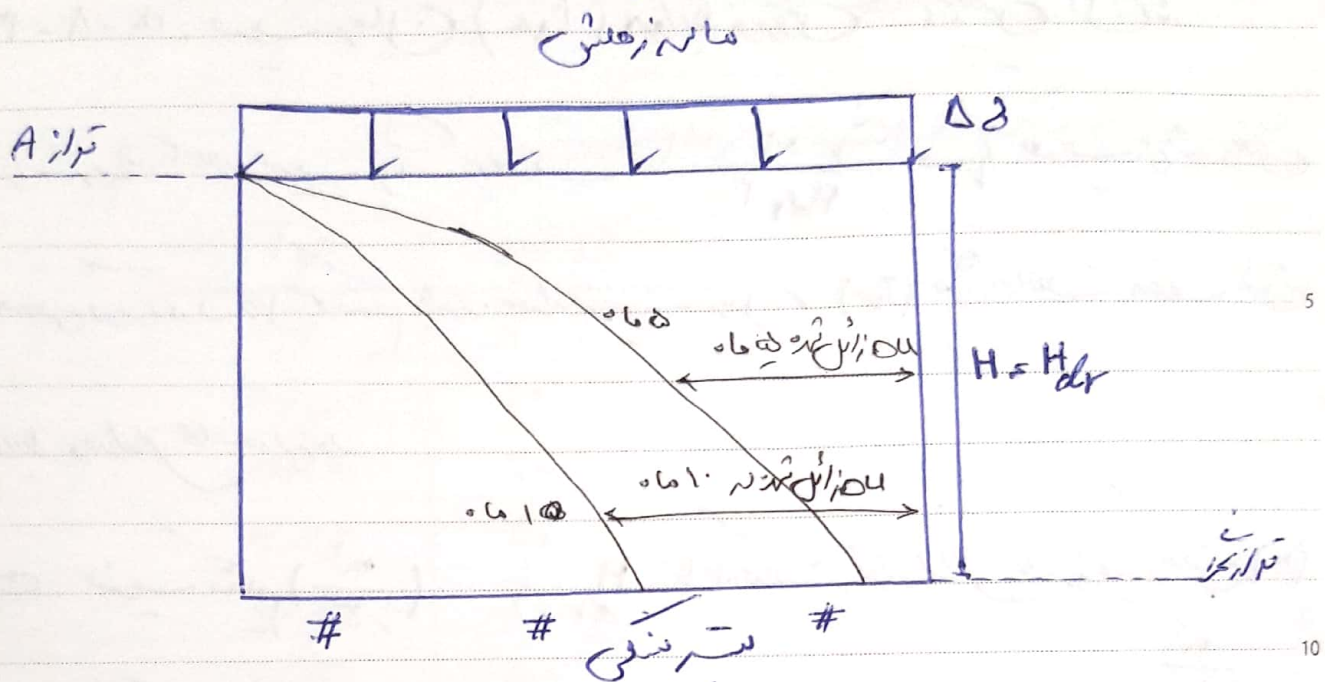 ماسه زهکش
Δδ
تراز A
5
۵ ماه
زائل شده
H = Hdr
زائل شده ۱۰ ماه
ماه
تراز
# # #
بستر سنگی
10